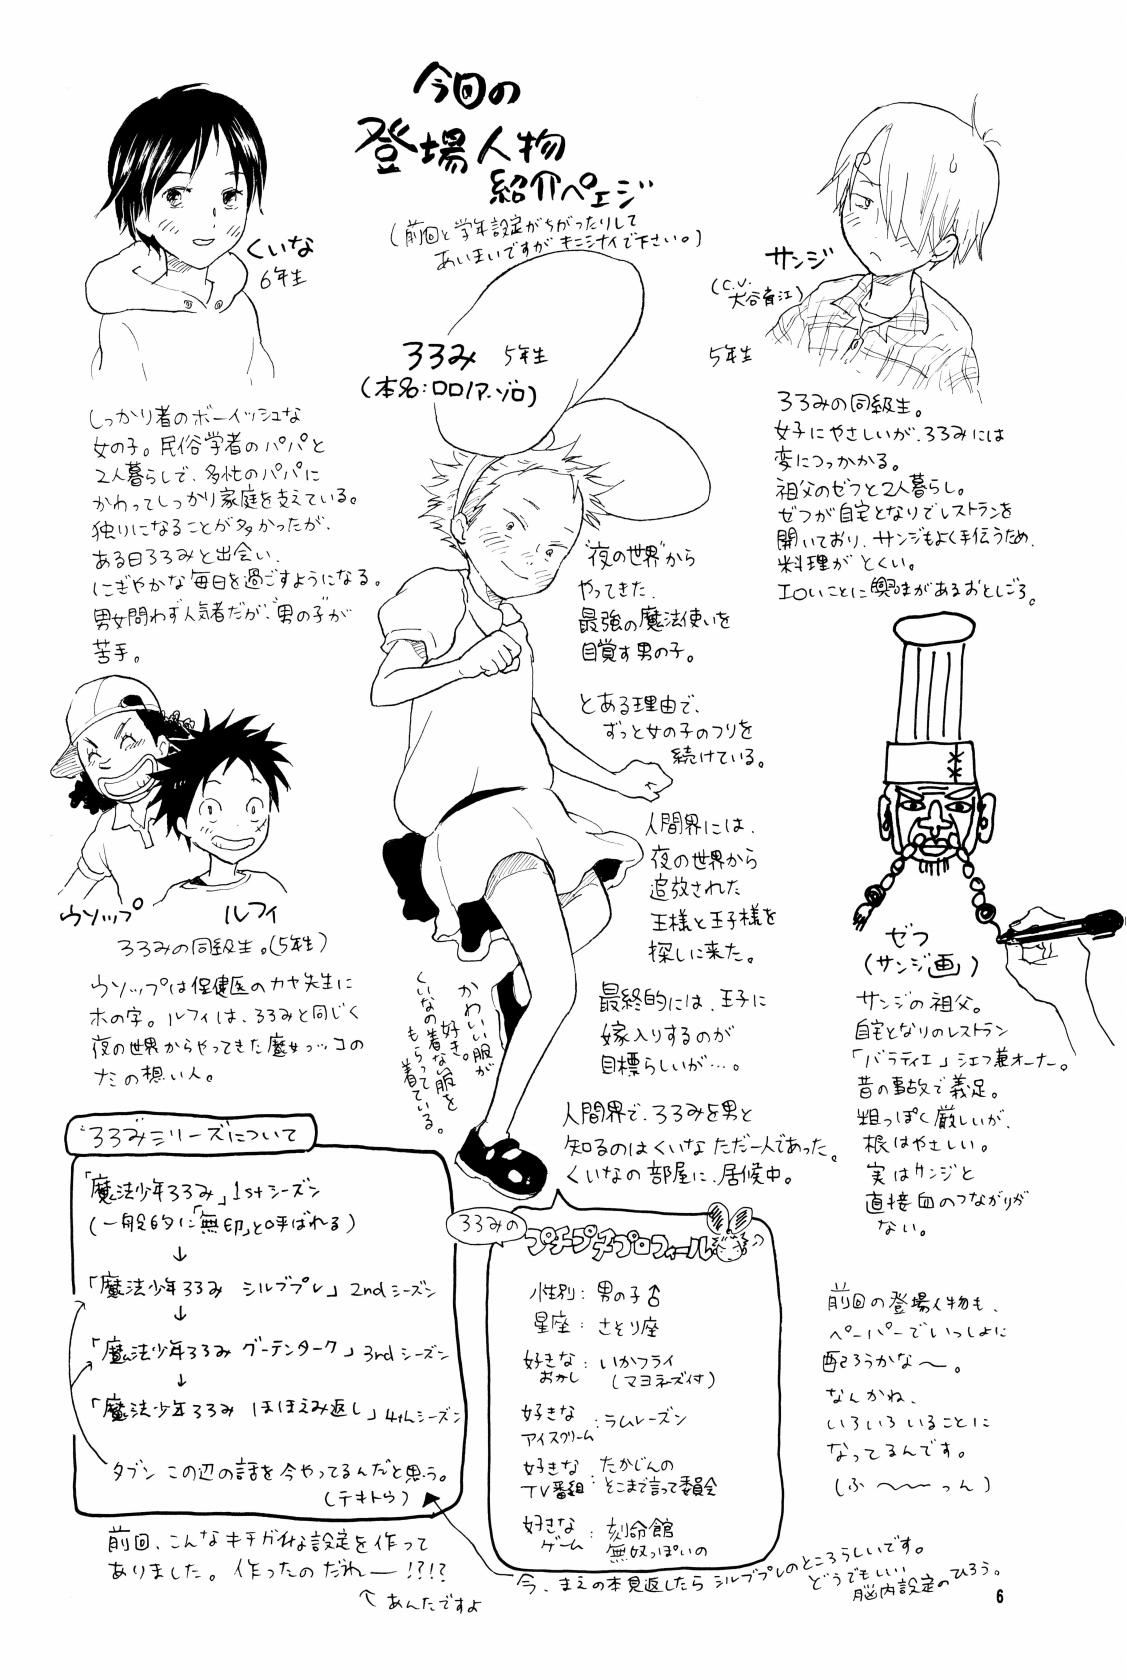 今回の
登場人物
紹介ペェジ
(前回と学年設定がちがったりして
あいまいですがキニシナイで下さい。)
くいな
6年生
しっかり者のボーイッシュな
女の子。民俗学者のパパと
2人暮らしで、多忙のパパに
かわってしっかり家庭を支えている。
独りになることが多かったが、
ある日ろろみと出会い、
にぎやかな毎日を過ごすようになる。
男女問わず人気者だが、"男の子"が
苦手。
ろろみ 5年生
(本名:ロロノア・ゾロ)
"夜の世界"から
やってきた、
最強の魔法使いを
目覚す男の子。
とある理由で、
ずっと女の子のフリを
続けている。
人間界には、
夜の世界から
追放された
王様と王子様を
探しに来た。
最終的には、王子に
嫁入りするのが
目標らしいが…。
人間界で、ろろみを男と
知るのはくいなただ一人であった。
くいなの部屋に、居候中。
かわいい服が
好き。
くいなの着ない服を
もらって
着ている。
サンジ
(C.V.
大谷育江)
5年生
ろろみの同級生。
女子にやさしいが、ろろみには
変につっかかる。
祖父のゼフと2人暮らし。
ゼフが自宅となりでレストランを
開いており、サンジもよく手伝うため、
料理がとくい。
エロいことに興味があるおとしごろ。
ウソップ
ルフィ
ろろみの同級生。(5年生)
ウソップは保健医のカヤ先生に
ホの字。ルフィは、ろろみと同じく
夜の世界からやってきた魔女っコの
ナミの想い人。
ゼフ
(サンジ画)
サンジの祖父。
自宅となりのレストラン
「バラティエ」シェフ兼オーナー。
昔の事故で義足。
粗っぽく厳しいが、
根はやさしい。
実はサンジと
直接血のつながりが
ない。
"ろろみ"シリーズについて
「魔法少年ろろみ」1stシーズン
(一般的に「無印」と呼ばれる)
↓
「魔法少年ろろみ シルブプレ」2ndシーズン
↓
「魔法少年ろろみ グーテンターク」3rdシーズン
↓
「魔法少年ろろみ ほほえみ返し」4thシーズン
タブン この辺の話を今やってるんだと思う。
(テキトウ)
前回、こんなキチガイな設定を作って
ありました。作ったのだれー!?!?
↑あんたですよ
ろろみの
プチプチプロフィール
性別:男の子♂
星座:さそり座
好きな
おかし:いかフライ
(マヨネーズ付)
好きな
アイスクリーム:ラムレーズン
好きな
TV番組:たかじんの
そこまで言って委員会
好きな
ゲーム:刻命館
無双っぽいの
今、まえの本見返したらシルブプレのところらしいです。
どうでもいい
脳内設定のひろう。
前回の登場人物も、
ペーパーでいっしょに
配ろうかな〜。
なんかね、
いろいろいることに
なってるんです。
(ふ〜〜っん)
6